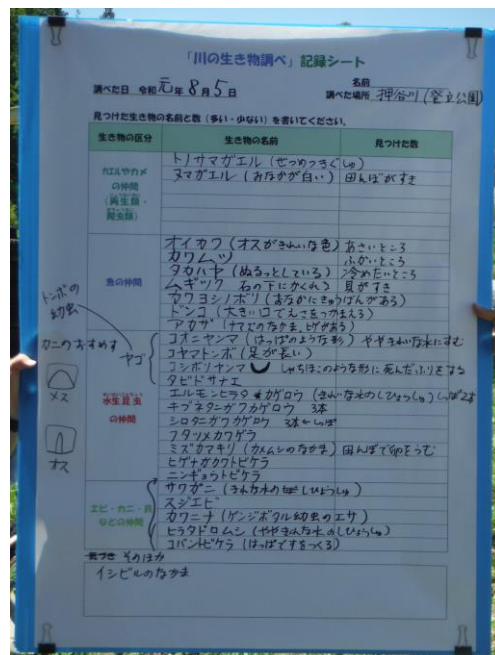 「川の生き物調べ」記録シート
名前
調べた日 令和元年8月5日
調べた場所 押谷川(登立公園)
見つけた生き物の名前と数(多い・少ない)を書いてください。
生き物の区分 生き物の名前 見つけた数
カエルやカメの仲間(両生類・爬虫類)
トノサマガエル(ぜつめつきぐしゅ)
ヌマガエル(おなかが白い) 田んぼがすき
魚の仲間
オイカワ(オスがきれいな色) あさいところ
カワムツ ふかいところ
タカハヤ(ぬるっとしている) 冷めたいところ
ムギツク 石の下にかくれる 貝がすき
カワヨシノボリ(おなかにきゅうばんがある)
ドンコ(大きい口でえさをつかまえる)
アカザ(ナマズのなかま、ヒゲがある)
トンボの幼虫
ヤゴ
コオニヤンマ(はっぱのような形) ややきれいな水にすむ
コヤマトンボ(足が長い)
コシボソヤンマ しゃちほこのような形に死んだふりをする
タビドサナエ
カニのおすめす
メス
オス
水生昆虫の仲間
エルモンヒラタカゲロウ(きれいな水のしひょうしゅ)しっぽ2本
チブネタニガワカゲロウ 3本
シロタニガワカゲロウ 3本←しっぽ
フタツメカワゲラ
ミズカマキリ(カメムシのなかま) 田んぼで卵をうむ
ヒゲナガカワトビケラ
ニンギョウトビケラ
エビ・カニ・貝などの仲間
サワガニ(きれいな水のしひょうしゅ)
スジエビ
カワニナ(ゲンジボタル幼虫のエサ)
ヒラタドロムシ(ややきれいな水のしひょうしゅ)
コバントビケラ(はっぱですをつくる)
そのほか
イシビルのなかま